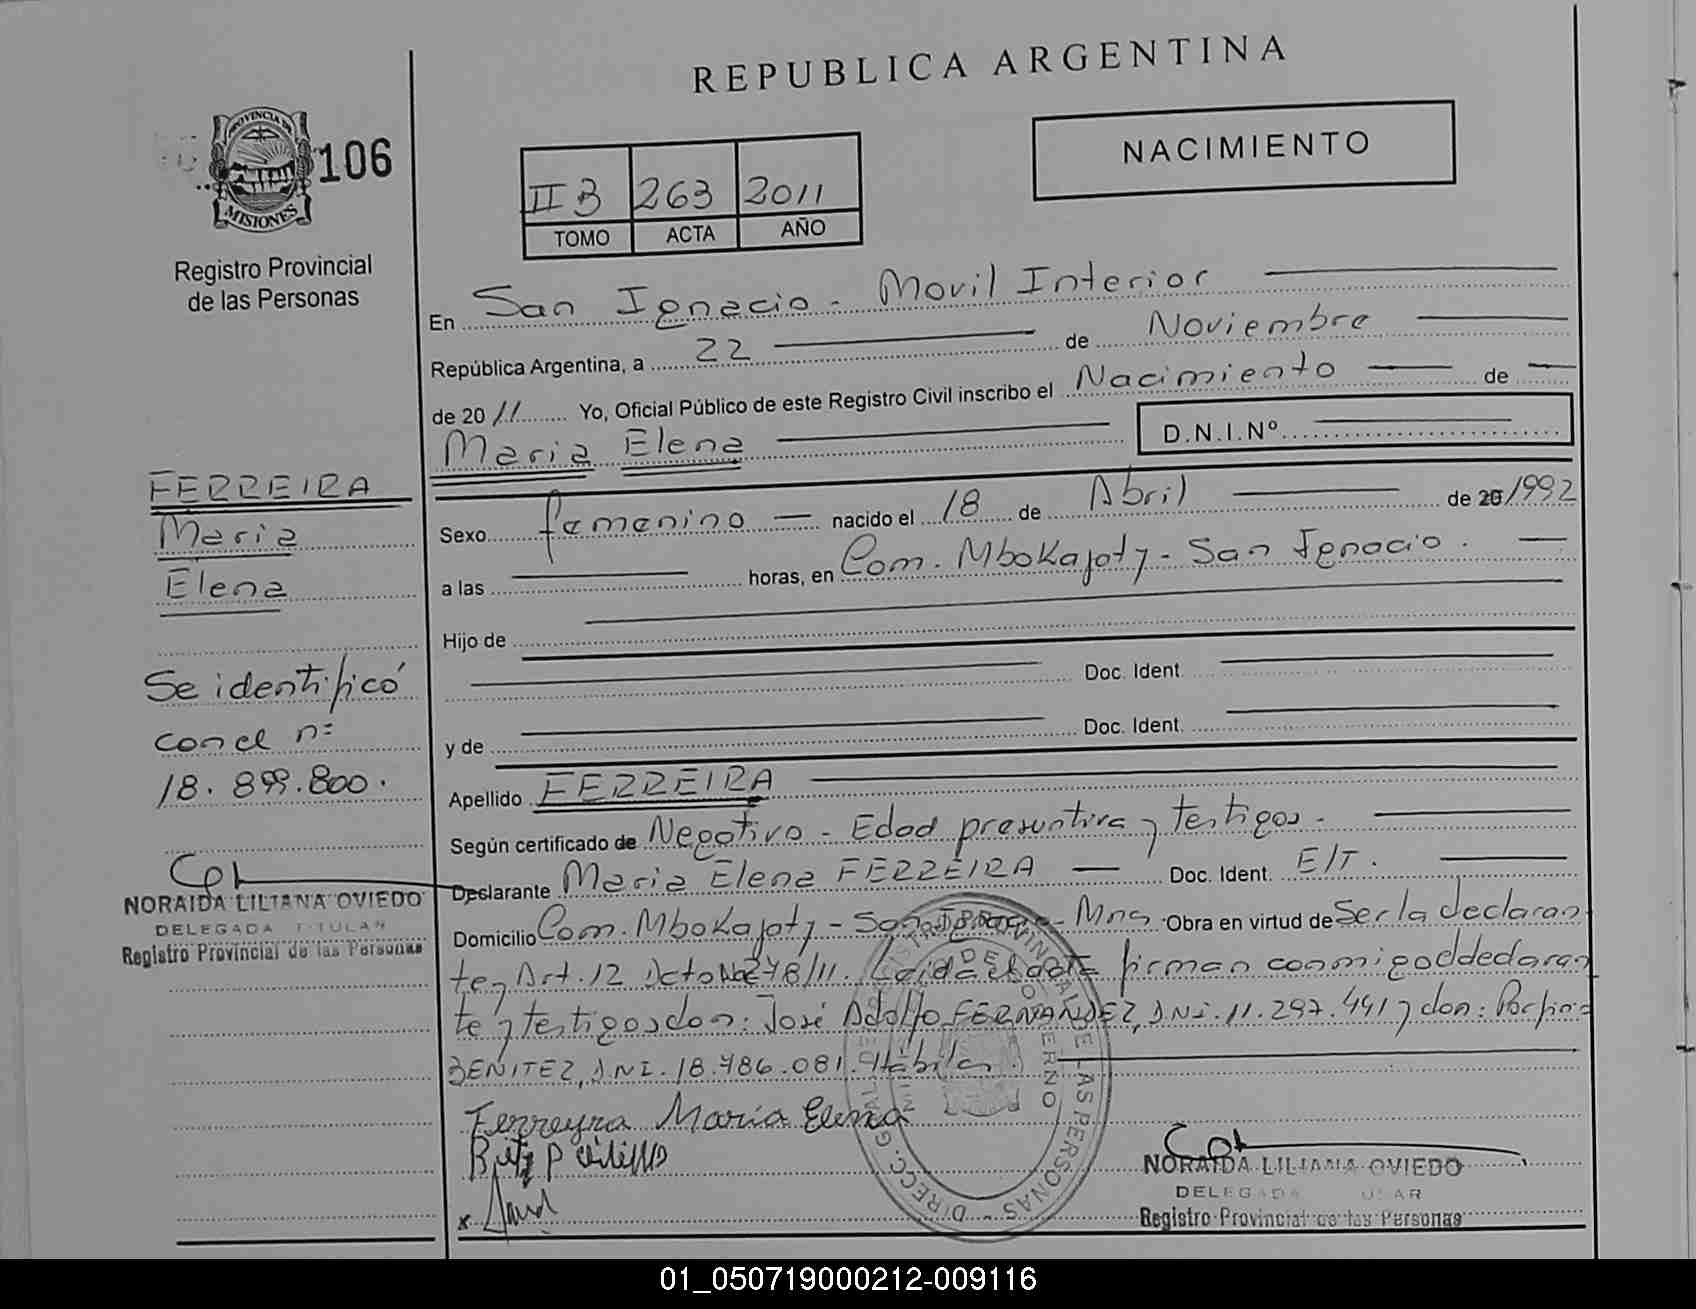 REPUBLICA ARGENTINA
PROVINCIA DE
MISIONES
106
NACIMIENTO
II B 263 2011
TOMO ACTA AÑO
Registro Provincial
de las Personas
En San Ignacio - Movil Interior
República Argentina, a 22 de Noviembre
de 2011 Yo, Oficial Público de este Registro Civil inscribo el Nacimiento de
Maria Elena D.N.I.Nº
FERREIRA
Maria
Elena
Sexo femenino nacido el 18 de Abril de 20 1992
a las horas, en Com. Mbokajaty - San Ignacio.
Hijo de
Doc. Ident.
y de Doc. Ident.
Se identificó
con el nº
18.899.800.
Apellido FERREIRA
Según certificado de Negativo - Edad presuntiva y testigos.
Declarante Maria Elena FERREIRA Doc. Ident. E/T.
Domicilio Com. Mbokajaty - San Ignacio - Mnes. Obra en virtud de Ser la declaran
te y Art. 12 Dcto Nº 278/11. Leida el acta firman conmigo declaran
te y testigos don: José Adolfo FERNANDEZ, DNI. 11.297.441 y don: Porfirio
BENITEZ, DNI. 18.786.081. Hábiles.
Ferreyra Maria Elena
NORAIDA LILIANA OVIEDO
DELEGADA TITULAR
Registro Provincial de las Personas
NORAIDA LILIANA OVIEDO
DELEGADA
Registro Provincial de las Personas
01_050719000212-009116